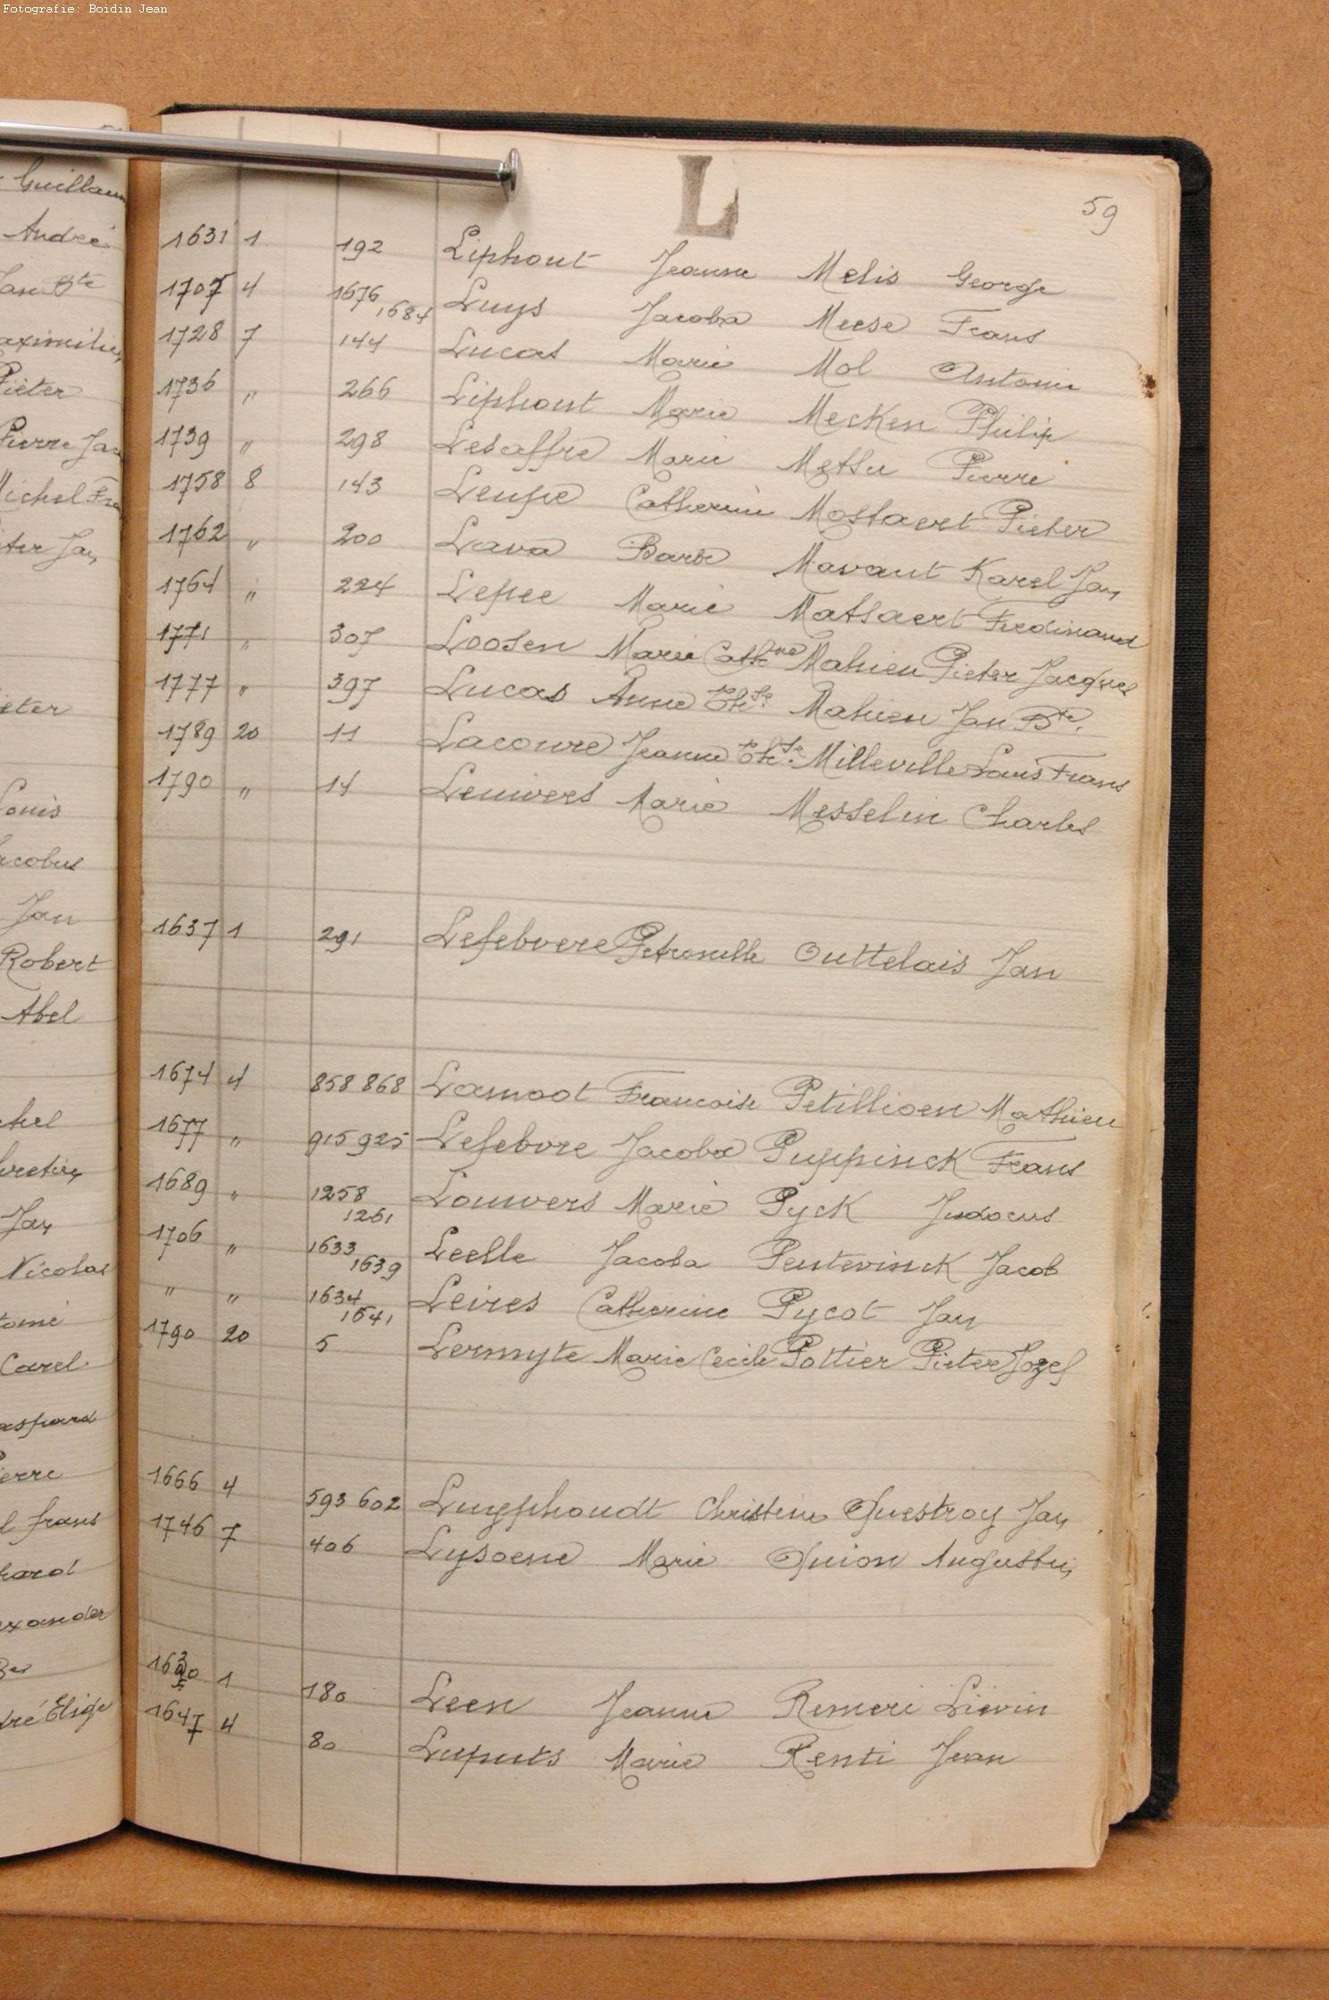 Fotografie: Boidin Jean
Guillaum
André
Jan Bte
aximilien
Pieter
Pierre Jac
Michel Fra
ter Jan
eter
Louis
acobus
Jan
Robert
Abel
chel
Jan
Nicolas
Carel
aspard
ierre
l frans
hard
exander
dré Elige
L
59
1631 1 192 Liphout Jeanne Melis George
1707 4 1676 1684 Luys Jacoba Meese Frans
1728 7 144 Lucas Marie Mol Antoine
1736 " 266 Liphout Marie Mecken Philip
1739 " 298 Lesaffre Marie Metsu Pierre
1758 8 143 Leupe Catherine Mostaert Pieter
1762 " 200 Lava Barbe Mavaut Karel Jan
1764 " 224 Lepee Marie Matsaert Ferdinand
1771 " 307 Loosen Marie Cathne Mahieu Pieter Jacques
1777 " 397 Lucas Anne Thse Mahieu Jan Bte.
1789 20 11 Lacoure Jeanne Thse Milleville Louis Frans
1790 " 14 Leuwers Marie Messelin Charles
1637 1 291 Lefebvere Petronille Outtelais Jan
1674 4 858 868 Lamoot Francoise Petillioen Mathieu
1677 " 915 925 Lefebvre Jacoba Puppinck Frans
1689 " 1258 1261 Louwers Marie Pyck Judocus
1706 " 1633 1639 Leelle Jacoba Pentevinck Jacob
" " 1634 1641 Leires Catherine Pycot Jan
1790 20 5 Lermyte Marie Cecile Pottier Pieter Jozef
1666 4 593 602 Luyphoudt Christine Questroy Jan
1746 7 406 Lysoene Marie Quion Augustin
1630 1 180 Leen Jeanne Remeri Liévin
1647 4 80 Luputs Marie Renti Jean